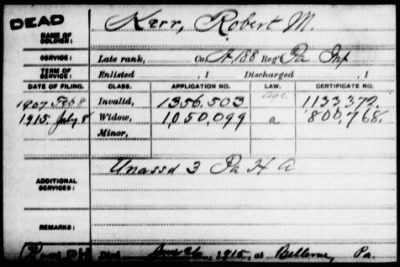 DEAD
NAME OF SOLDIER: Kerr, Robert M.
SERVICE: Late rank, Co. A-188 Reg't Pa Inf
TERM OF SERVICE: Enlisted , 1 Discharged , 1
DATE OF FILING. CLASS. APPLICATION NO. LAW. CERTIFICATE NO.
1907. Feb 8 Invalid, 1356,503 1133,372
1915. July 8 Widow, 1,050,099 a. 800,768.
Minor,
ADDITIONAL SERVICES: Unassd 3 Pa H A
REMARKS:
Died 1915, at Bellevue, Pa.